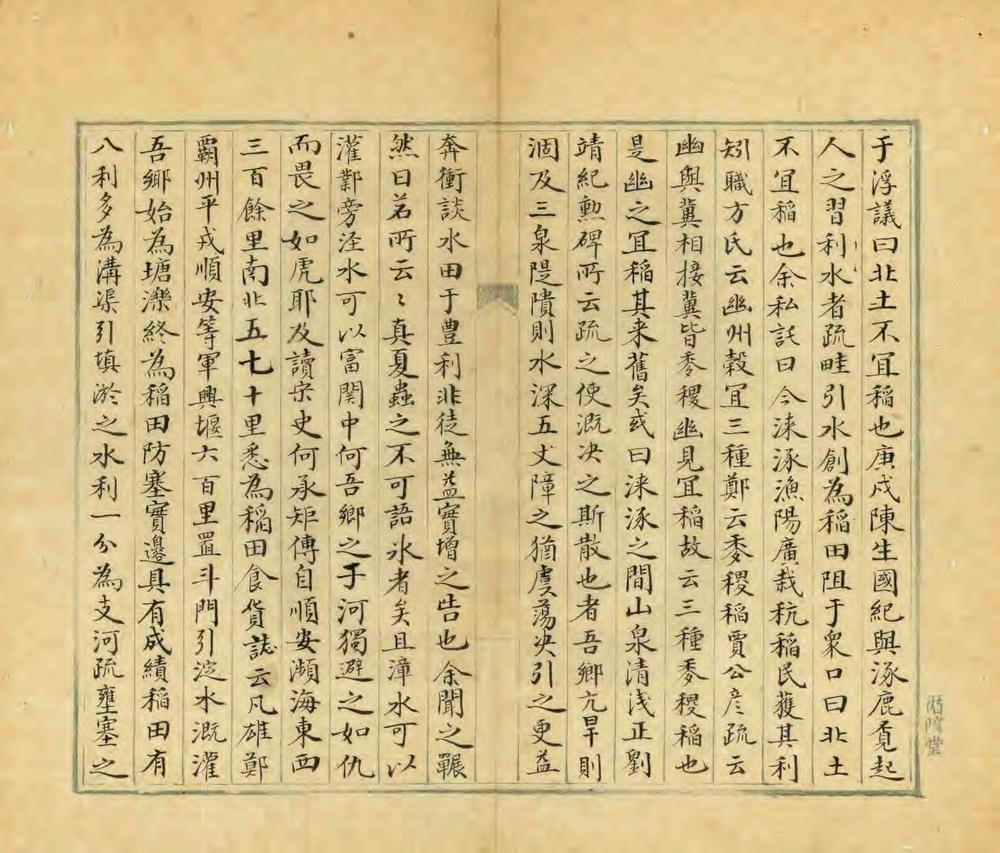 于浮議曰北土不冝稲也庚戌陳生國紀與涿鹿覔起
人之習利水者疏畦引水創為稲田阻于衆口曰北土
不冝稲也余私託曰今淶涿漁陽廣栽秔稲民獲其利
矧職方氏云幽州榖冝三種鄭云黍稷稲賈公彦疏云
幽與冀相接冀皆黍稷幽見冝稲故云三種黍稷稲也
是幽之冝稲其来舊矣或曰淶涿之間山泉清浅正劉
靖紀勲碑所云疏之使溉决之斯散也者吾鄉亢旱則
涸及三泉隄隤則水深五丈障之猶虞蕩决引之更益
奔衝談水田于豊利非徒無益實增之告也余聞之囅
然曰若所云〻真夏蟲之不可語氷者矣且漳水可以
灌鄴旁泾水可以富関中何吾鄉之于河獨避之如仇
而畏之如虎耶及讀宋史何承矩傳自順安瀕海東西
三百餘里南北五七十里悉為稲田食貨誌云凡雄鄭
霸州平戎順安等軍興堰六百里置斗門引淀水溉灌
吾鄉始為塘濼終為稲田防塞實邊具有成績稲田有
八利多為溝渠引填淤之水利一分為支河疏壅塞之